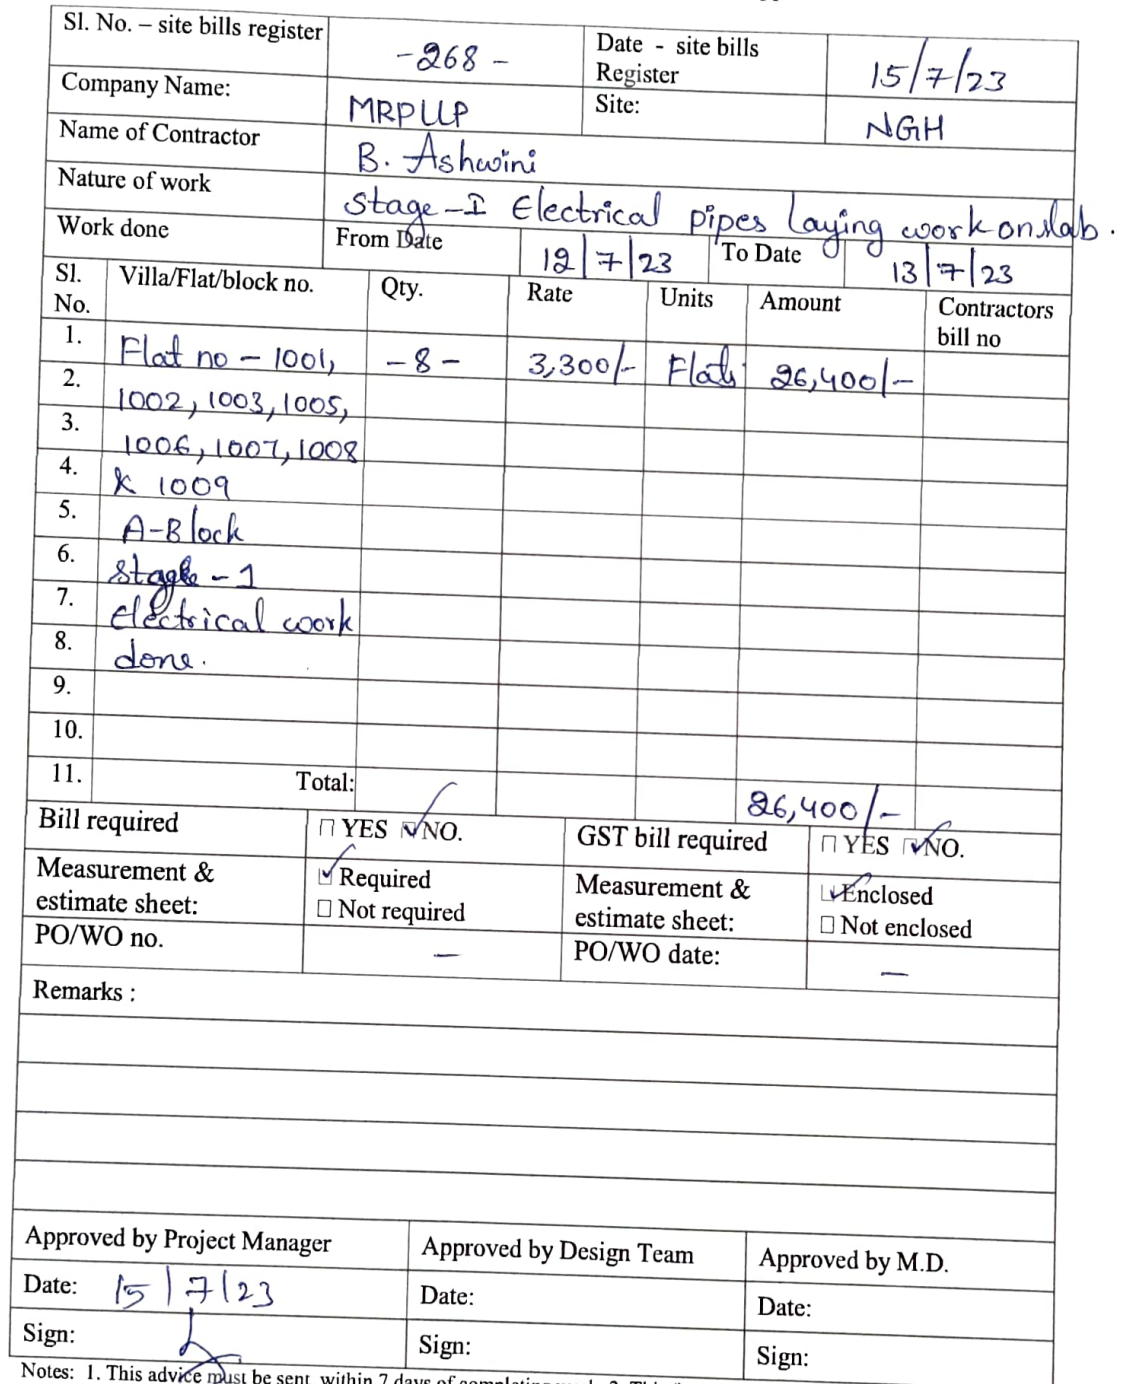 Sl. No. – site bills register -268- Date - site bills Register 15/7/23
Company Name: MRPLLP Site: NGH
Name of Contractor B. Ashwini
Nature of work Stage-I Electrical pipes laying work on slab.
Work done From Date 12/7/23 To Date 13/7/23
Sl. No. Villa/Flat/block no. Qty. Rate Units Amount Contractors bill no
1. Flat no - 1001, -8- 3,300/- Flats 26,400/-
2. 1002, 1003, 1005,
3. 1006, 1007, 1008
4. & 1009
5. A-Block
6. Stage - 1
7. Electrical work
8. done.
9.
10.
11. Total: 26,400/-
Bill required ☐ YES ☑ NO. GST bill required ☐ YES ☑ NO.
Measurement & estimate sheet: ☑ Required ☐ Not required Measurement & estimate sheet: ☑ Enclosed ☐ Not enclosed
PO/WO no. — PO/WO date: —
Remarks :
Approved by Project Manager Approved by Design Team Approved by M.D.
Date: 15/7/23 Date: Date:
Sign: Sign: Sign:
Notes: 1. This advice must be sent within 7 days of